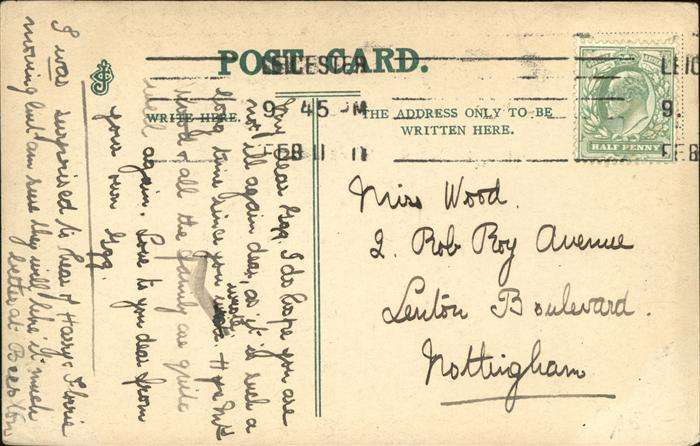 POST CARD.
LEICESTER
9 45 PM
FEB 11 11
WRITE HERE.
THE ADDRESS ONLY TO BE
WRITTEN HERE.
HALF PENNY
LEIC
9.
FEB
Miss Wood.
2. Rob Roy Avenue
Lenton Boulevard.
Nottingham
My dear Egg. I do hope you are
not ill again dear, as it is such a
long time since you wrote. Hope Mr
Wood & all the family are quite
well again. Love to you dear from
your own Egg.
I was surprised to hear of Harry & Florrie
moving but am sure they will like it much
better at Beeston